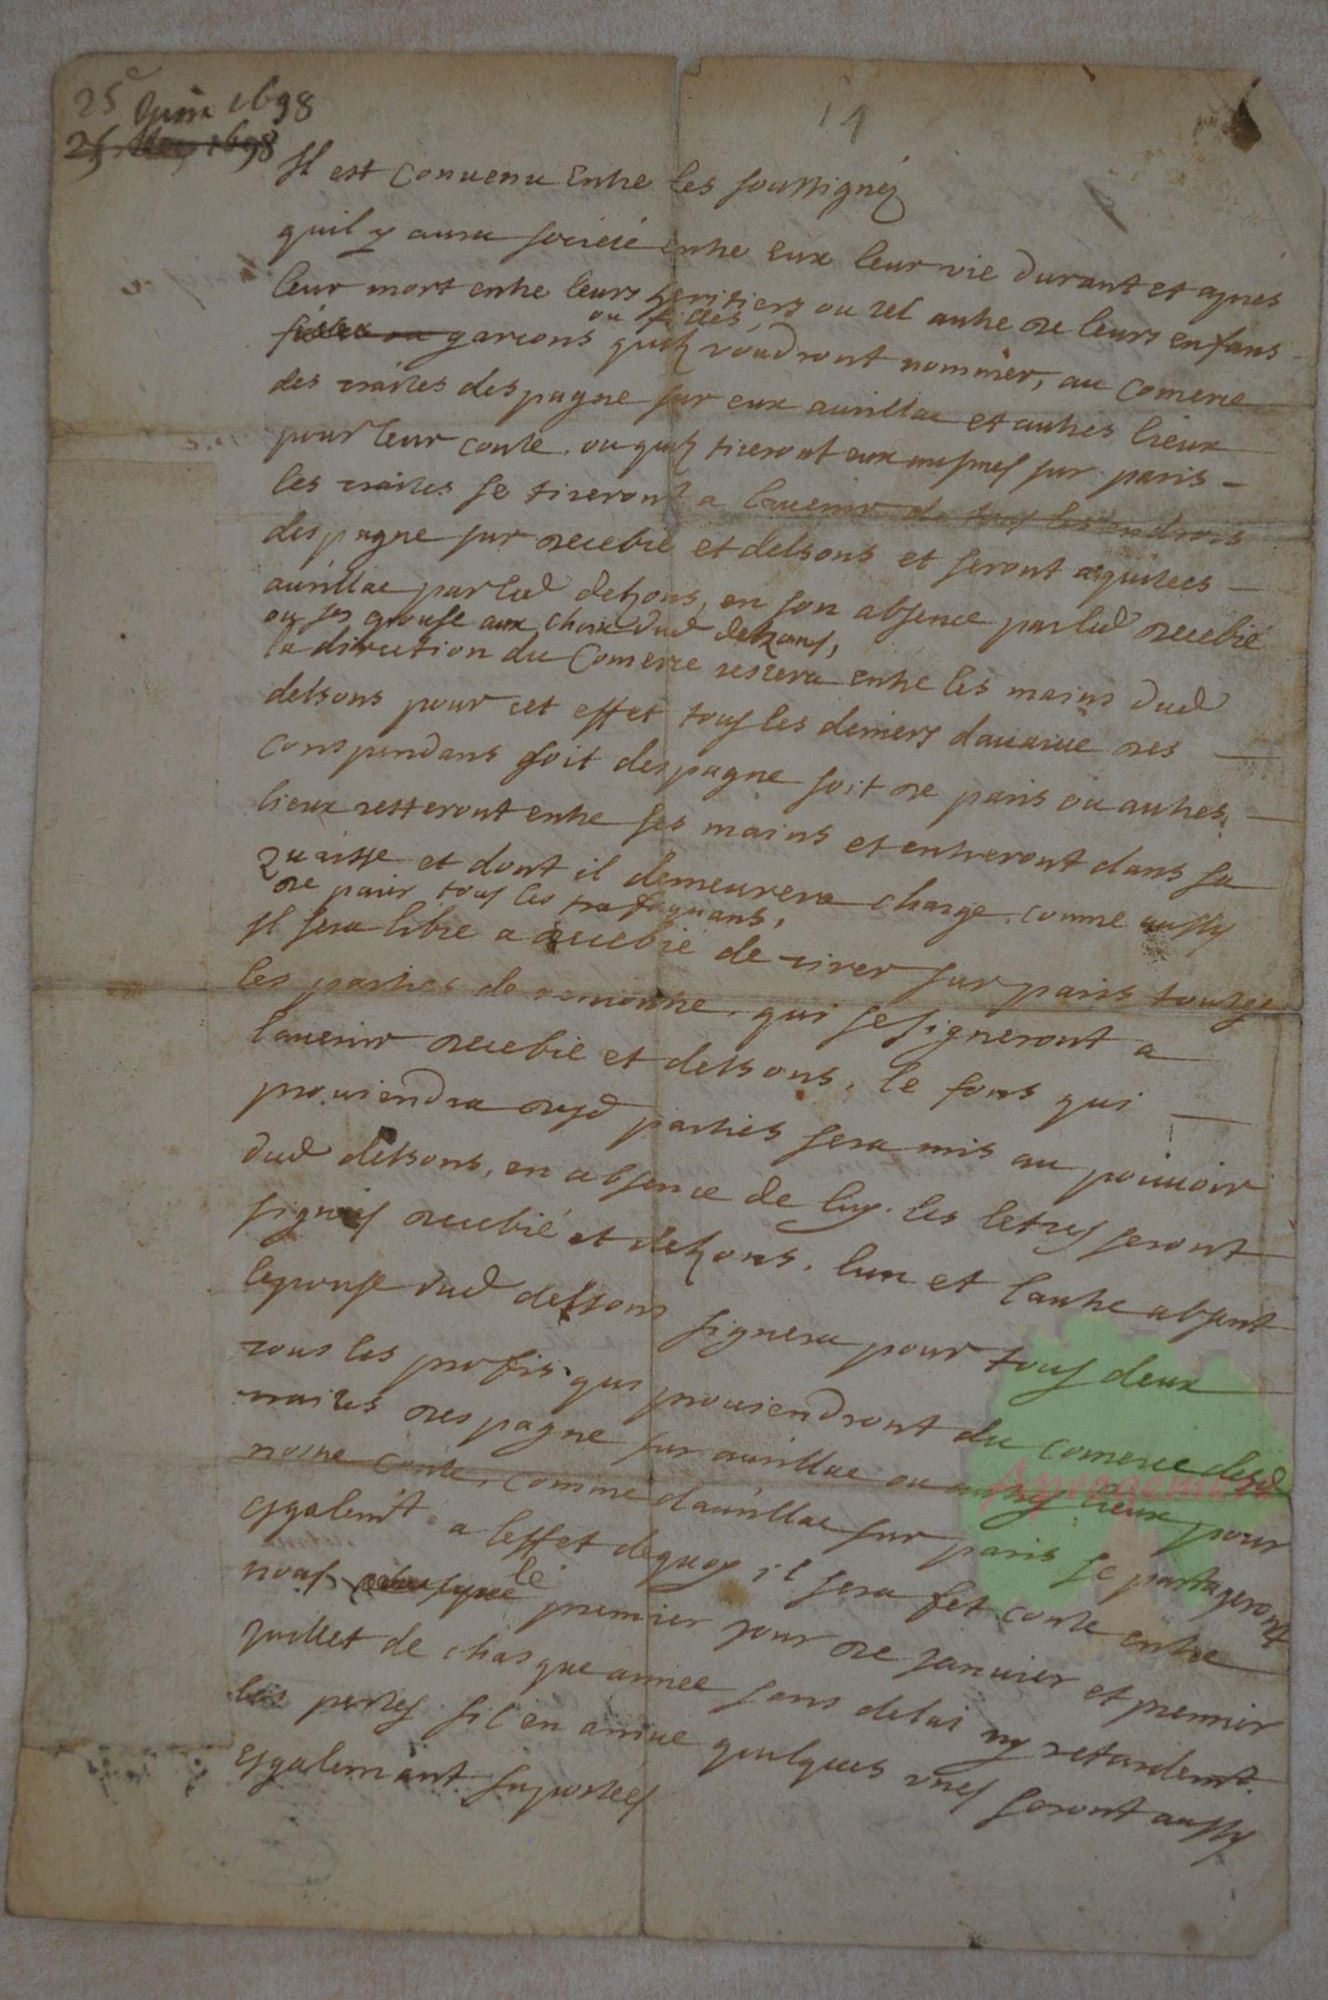 25e Juin 1698
25 May 1698
11
Il est convenu entre les soussignéz
quil y aura société entre eux leur vie durant et apres
leur mort entre leurs heritiers ou tel autre de leurs enfans
ou filles,
garcons quilz voudront nommer, au comerce
des traites despagne sur eux aurillac et autres lieux
pour leur conte. ou quilz tireront eux mesmes sur paris -
les traites se tireront a lauenir de tous les endrois
despagne sur decebié et delsons et seront aquitees -
aurillac par led delzons, en son absence par led decebié
ou ses epouse aux choix dud delzons,
la direction du comerce restera entre les mains dud
delsons pour cet effet tous les deniers des
corespondans soit despagne soit de paris ou autres -
lieux resteront entre ses mains et entreront dans sa
quaisse et dont il demeurera charge. comme aussy
de paier tous les
Il sera libre a decebié de tirer sur paris toutes
les parties de qui se signeront a
lauenir decebié et delsons. le fons qui -
prouiendra desd parties sera mis au pouuoir
dud delsons, en absence de luy. les letres seront
signées decebié et delzons. lun et lautre absent
lepouse dud delsons signera pour tous deux
tous les profis qui prouiendront du comerce desd
traites despagne sur aurillac ou autres lieux pour
nostre conte, comme daurillac sur paris se partageront
egalemt a leffet dequoy il sera fet conte entre
nous le premier jour de januier et premier
juillet de chasque année sans delai ny retardemt.
les pertes sil en ariue quelques unes seront aussy
esgalemant suportées
Apragemere